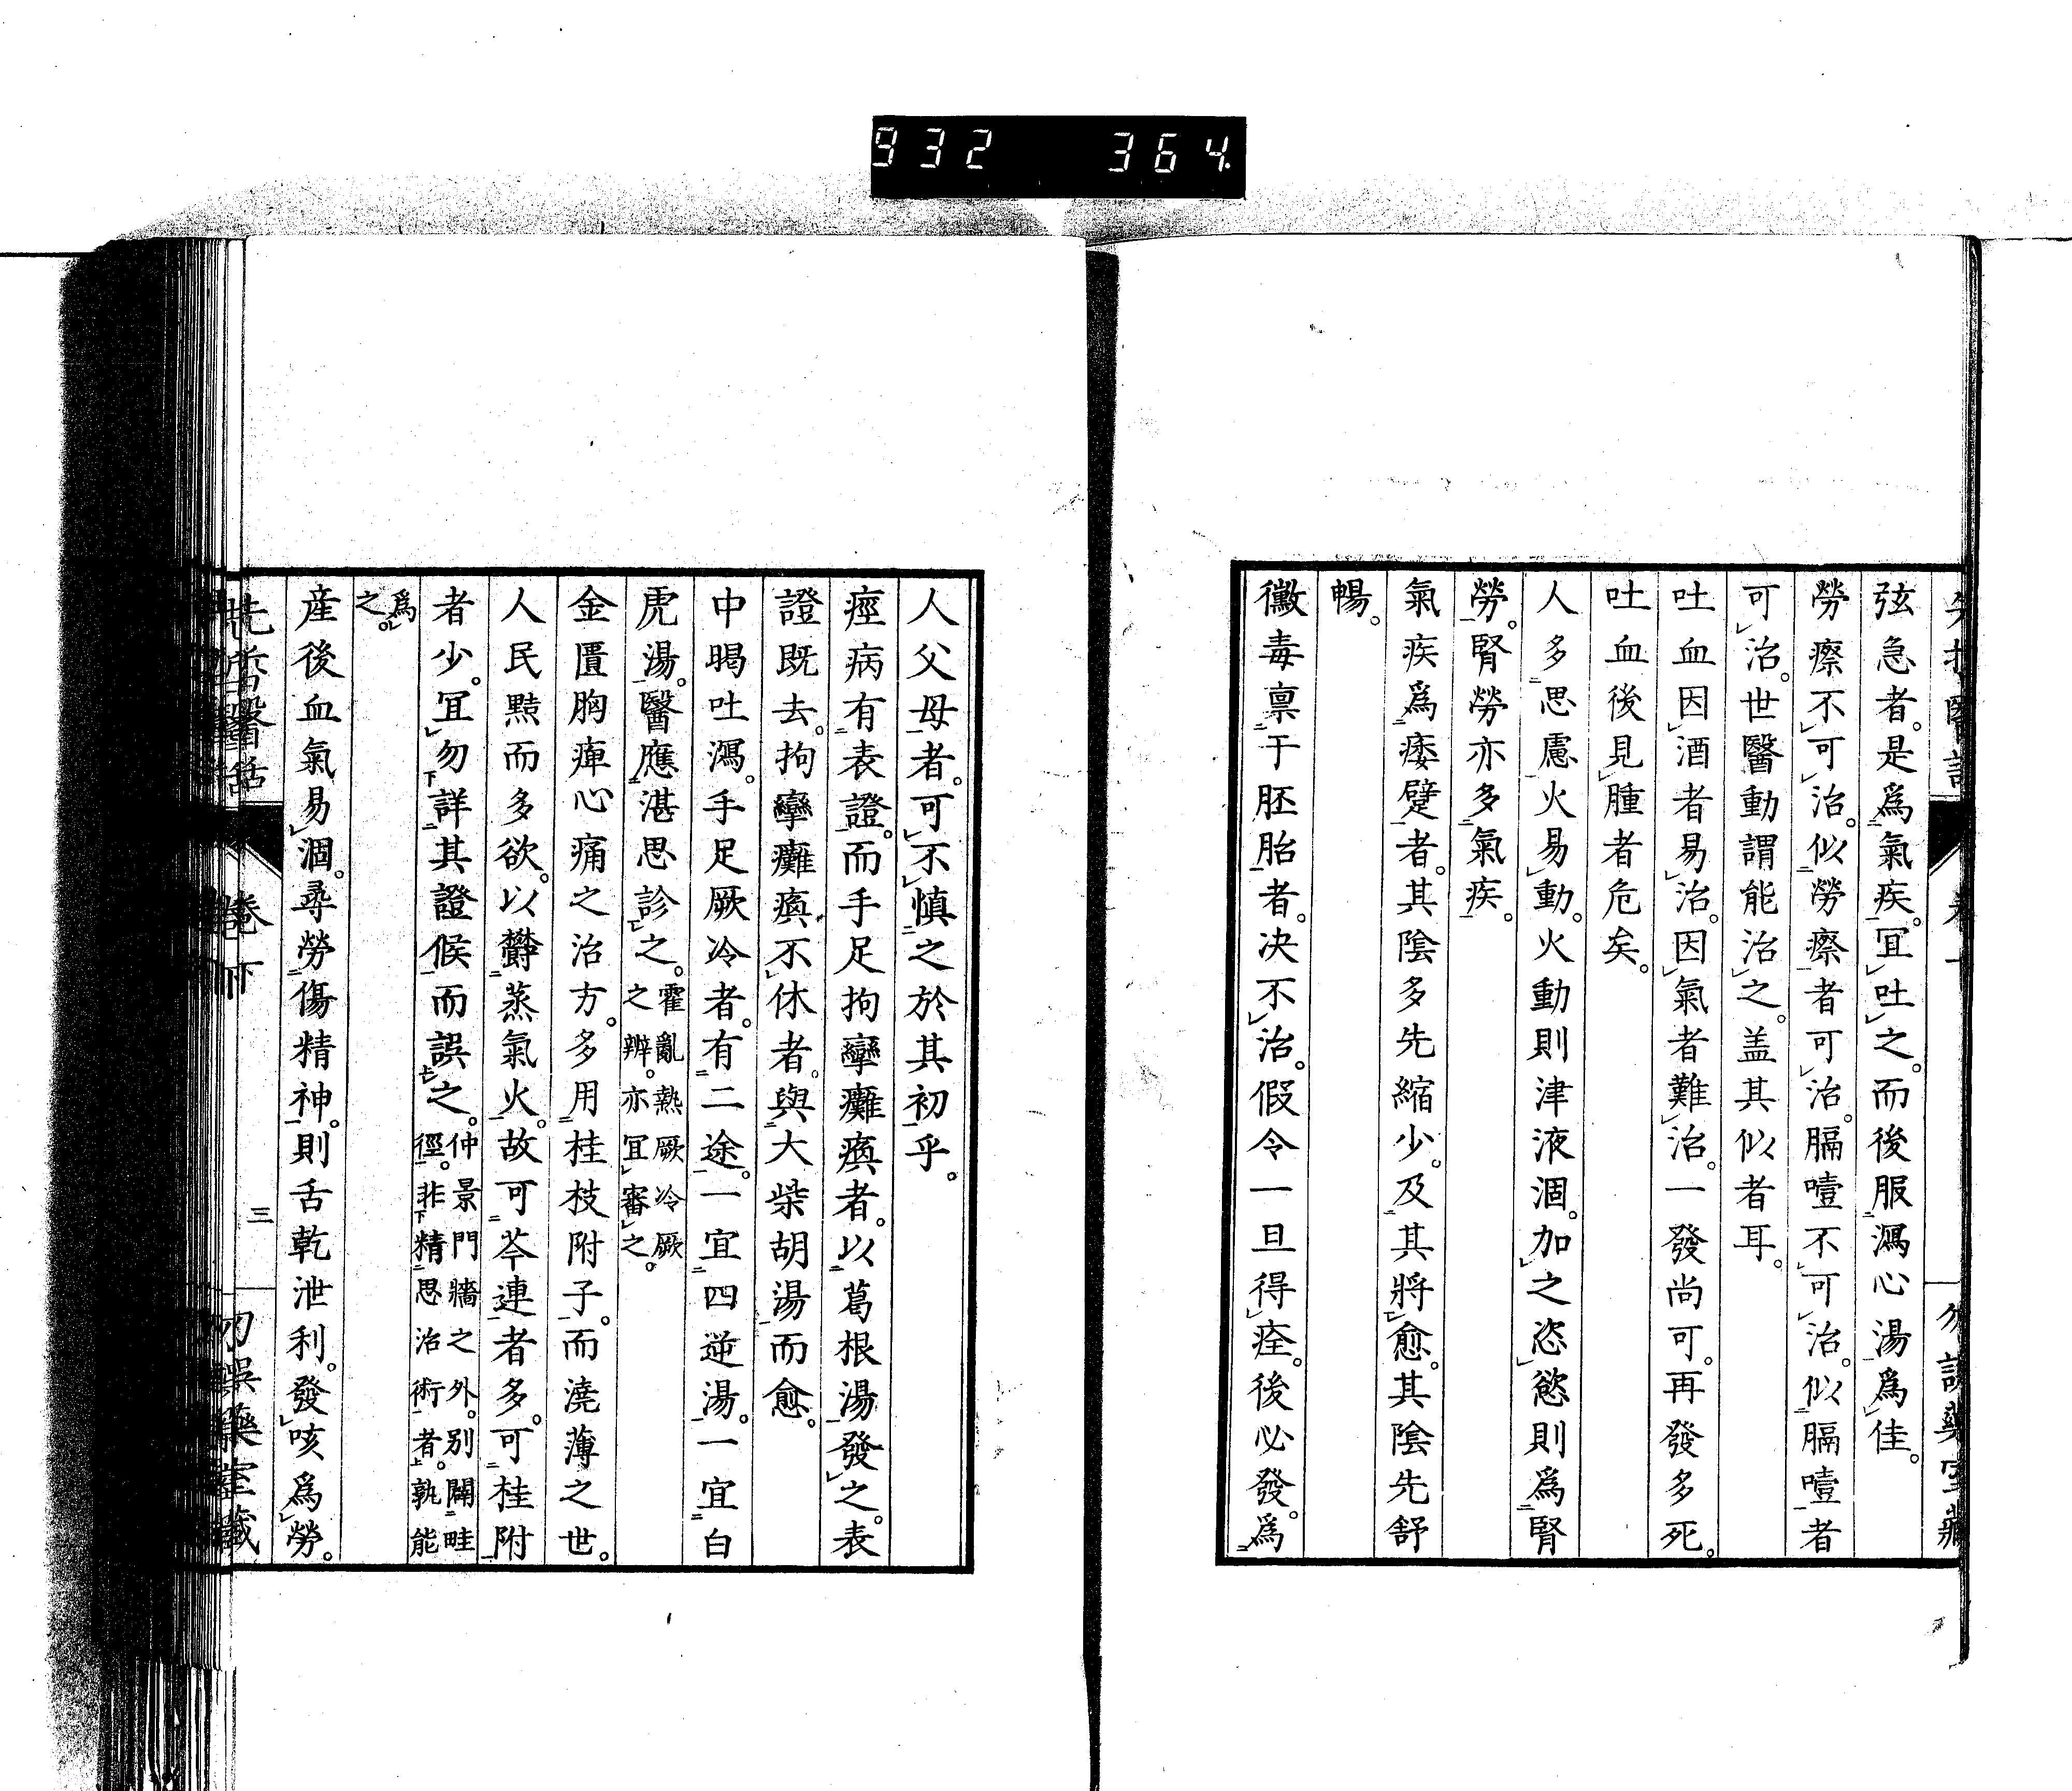 932 364
弦急者。是爲氣疾。冝吐之。而後服瀉心湯爲佳。
勞瘵不可治。似勞瘵者可治。膈噎不可治。似膈噎者
可治。世醫動謂能治之。盖其似者耳。
吐血因酒者易治。因氣者難治。一發尚可。再發多死。
吐血後見腫者危矣。
人多思慮火易動。火動則津液涸。加之恣慾則爲腎
勞。腎勞亦多氣疾。
氣疾爲痿躄者。其陰多先縮少。及其將愈。其陰先舒
暢。
黴毒禀于胚胎者。决不治。假令一旦得痊。後必發。爲
人父母者。可不慎之於其初乎。
痙病有表證。而手足拘攣癱瘓者。以葛根湯發之。表
證既去。拘攣癱瘓不休者。與大柴胡湯而愈。
中暍吐瀉。手足厥冷者。有二途。一宜四逆湯。一宜白
虎湯。醫應湛思診之。霍亂熱厥冷厥
之辨。亦冝審之。
金匱胸痺心痛之治方。多用桂枝附子。而澆薄之世。
人民黠而多欲。以欝蒸氣火。故可芩連者多。可桂附
者少。冝勿詳其證候而誤之。仲景門牆之外。別闢畦
徑。非精思治術者。孰能
爲
之。
産後血氣易涸。尋勞傷精神。則舌乾泄利。發咳爲勞。
先哲醫話
卷下
三
勿誤藥室藏